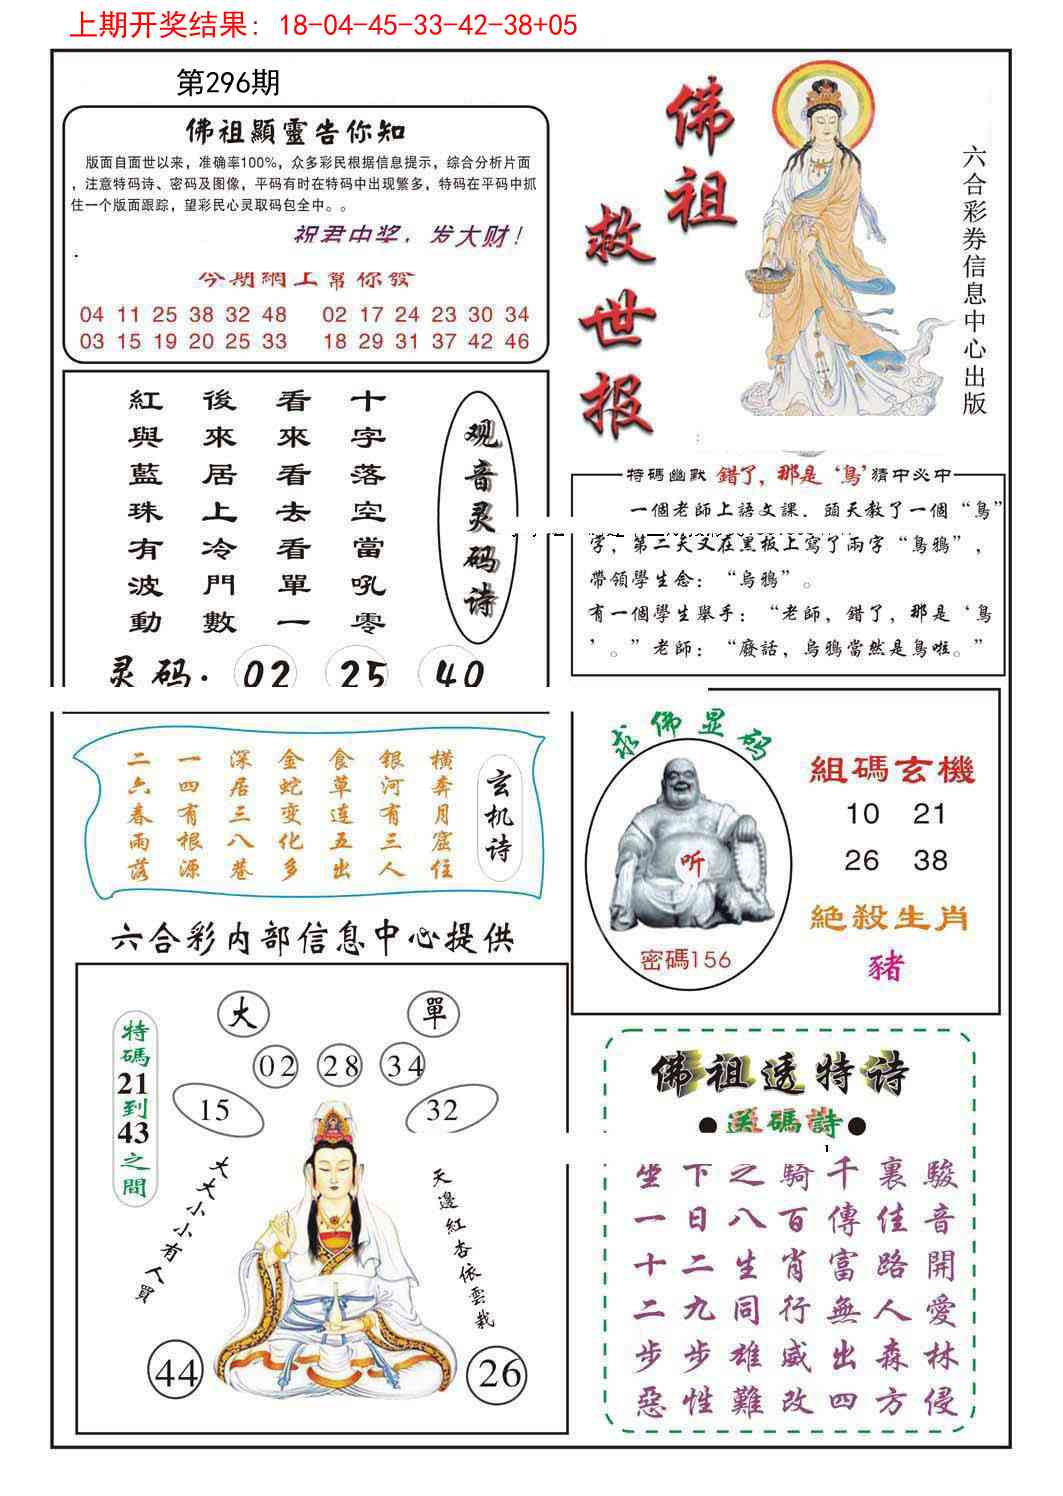 上期开奖结果: 18-04-45-33-42-38+05
第296期
佛祖顯靈告你知
版面自面世以来，准确率100%，众多彩民根据信息提示，综合分析片面
，注意特码诗、密码及图像，平码有时在特码中出现繁多，特码在平码中抓
住一个版面跟踪，望彩民心灵取码包全中。。
祝君中奖，发大财！
今期網上幫你發
04 11 25 38 32 48 02 17 24 23 30 34
03 15 19 20 25 33 18 29 31 37 42 46
佛祖
救世报
六合彩券信息中心出版
观音灵码诗
十字落空當吼零
看來看去看單一
後來居上冷門數
紅與藍珠有波動
灵码. 02 25 40
特碼幽默 錯了，那是‘鳥’猜中必中
一個老師上語文課．頭天教了一個“鳥”
字，第二天又在黑板上寫了兩字“鳥鴉”，
帶領學生念：“烏鴉”。
有一個學生舉手：“老師，錯了，那是‘鳥
’。”老師：“廢話，烏鴉當然是鳥啦。”
玄机诗
橫奔月窟住
银河有三人
食草连五出
金蛇变化多
深居三八巷
一四有根源
二六春雨落
求佛显码
听
密碼156
組碼玄機
10 21
26 38
絕殺生肖
豬
六合彩内部信息中心提供
特碼21到43之間
大 單
02 28 34
15 32
大大小小有人買
天邊紅杏依雲栽
44 26
佛祖透特诗
●送碼詩●
駿音開愛林侵
裏佳路人森方
千傳富無出四
騎百肖行威改
之八生同雄難
下日二九步性
坐一十二步惡